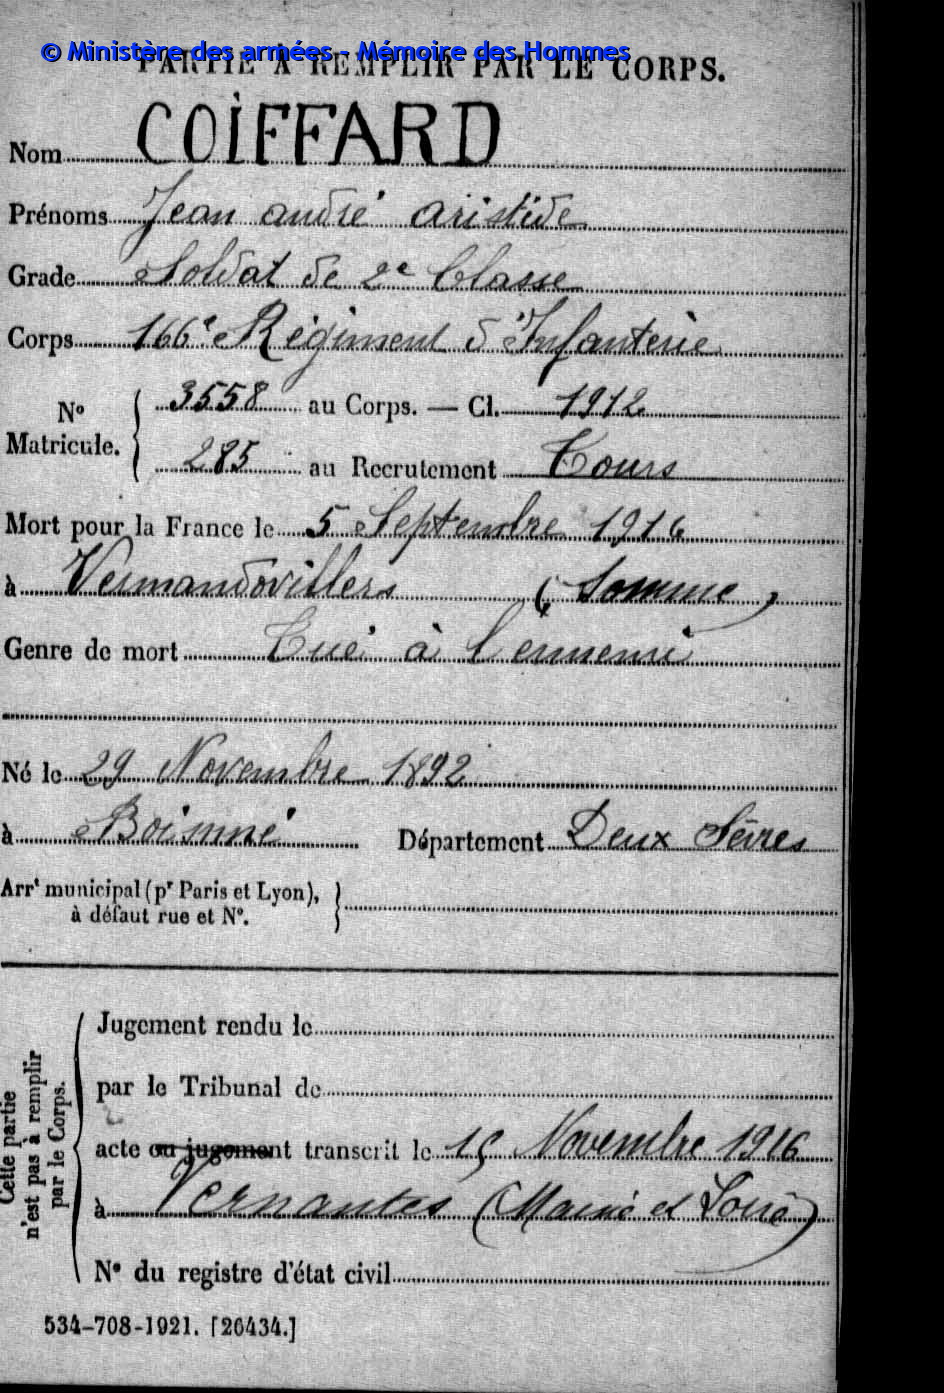 © Ministère des armées - Mémoire des Hommes
PARTIE À REMPLIR PAR LE CORPS.
Nom COIFFARD
Prénoms Jean andré aristide
Grade Soldat de 2e Classe
Corps 166e Régiment d'Infanterie
No Matricule. 3558 au Corps. — Cl. 1912
285 au Recrutement Tours
Mort pour la France le 5 Septembre 1916
à Vermandovillers (Somme)
Genre de mort Tué à l'ennemi
Né le 29 Novembre 1892
à Boismé Département Deux Sèvres
Arrt municipal (pr Paris et Lyon),
à défaut rue et No.
Cette partie
n'est pas à remplir
par le Corps.
Jugement rendu le
par le Tribunal de
acte ou jugement transcrit le 15 Novembre 1916
à Vernantes (Maine et Loire)
No du registre d'état civil
534-708-1921. [26434.]